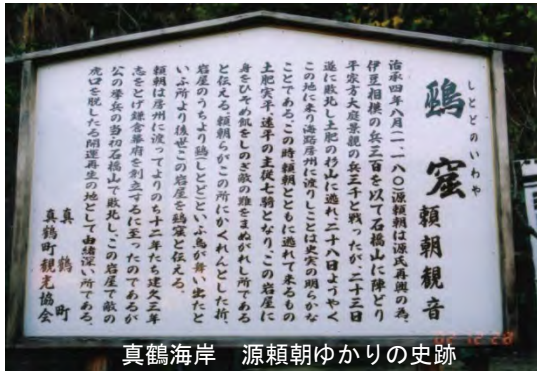 しとどのいわや
鵐窟 頼朝観音
治承四年八月(一一八〇)源頼朝は源氏再興の為、
伊豆相模の兵三百を以て石橋山に陣どり
平家方大庭景親の兵三千と戦ったが二十三日
遂に敗北し土肥の杉山に逃れ二十八日ようやく
この地に来り海路房州に渡りしことは史実の明らかな
ことである。この時頼朝とともに逃れて来るもの
土肥実平、遠平の主従七騎となり、この岩屋に
身をひそめ飢をしのぎ敵の難をまぬがれし所である
と伝える。頼朝らがこの所にかくれんとした折、
岩屋のうちより鵐(しとど)といふ鳥が舞い出たと
いふ所より後世この岩屋を鵐窟と伝える。
頼朝は房州に渡ってよりのち十二年たち建久三年
志をとげ鎌倉幕府を創立するに至ったのであるが
公の挙兵の当初石橋山で敗北し、この岩屋で敵の
虎口を脱したる開運再生の地として由緒深い所である。
真鶴町
真鶴町観光協会
真鶴海岸 源頼朝ゆかりの史跡